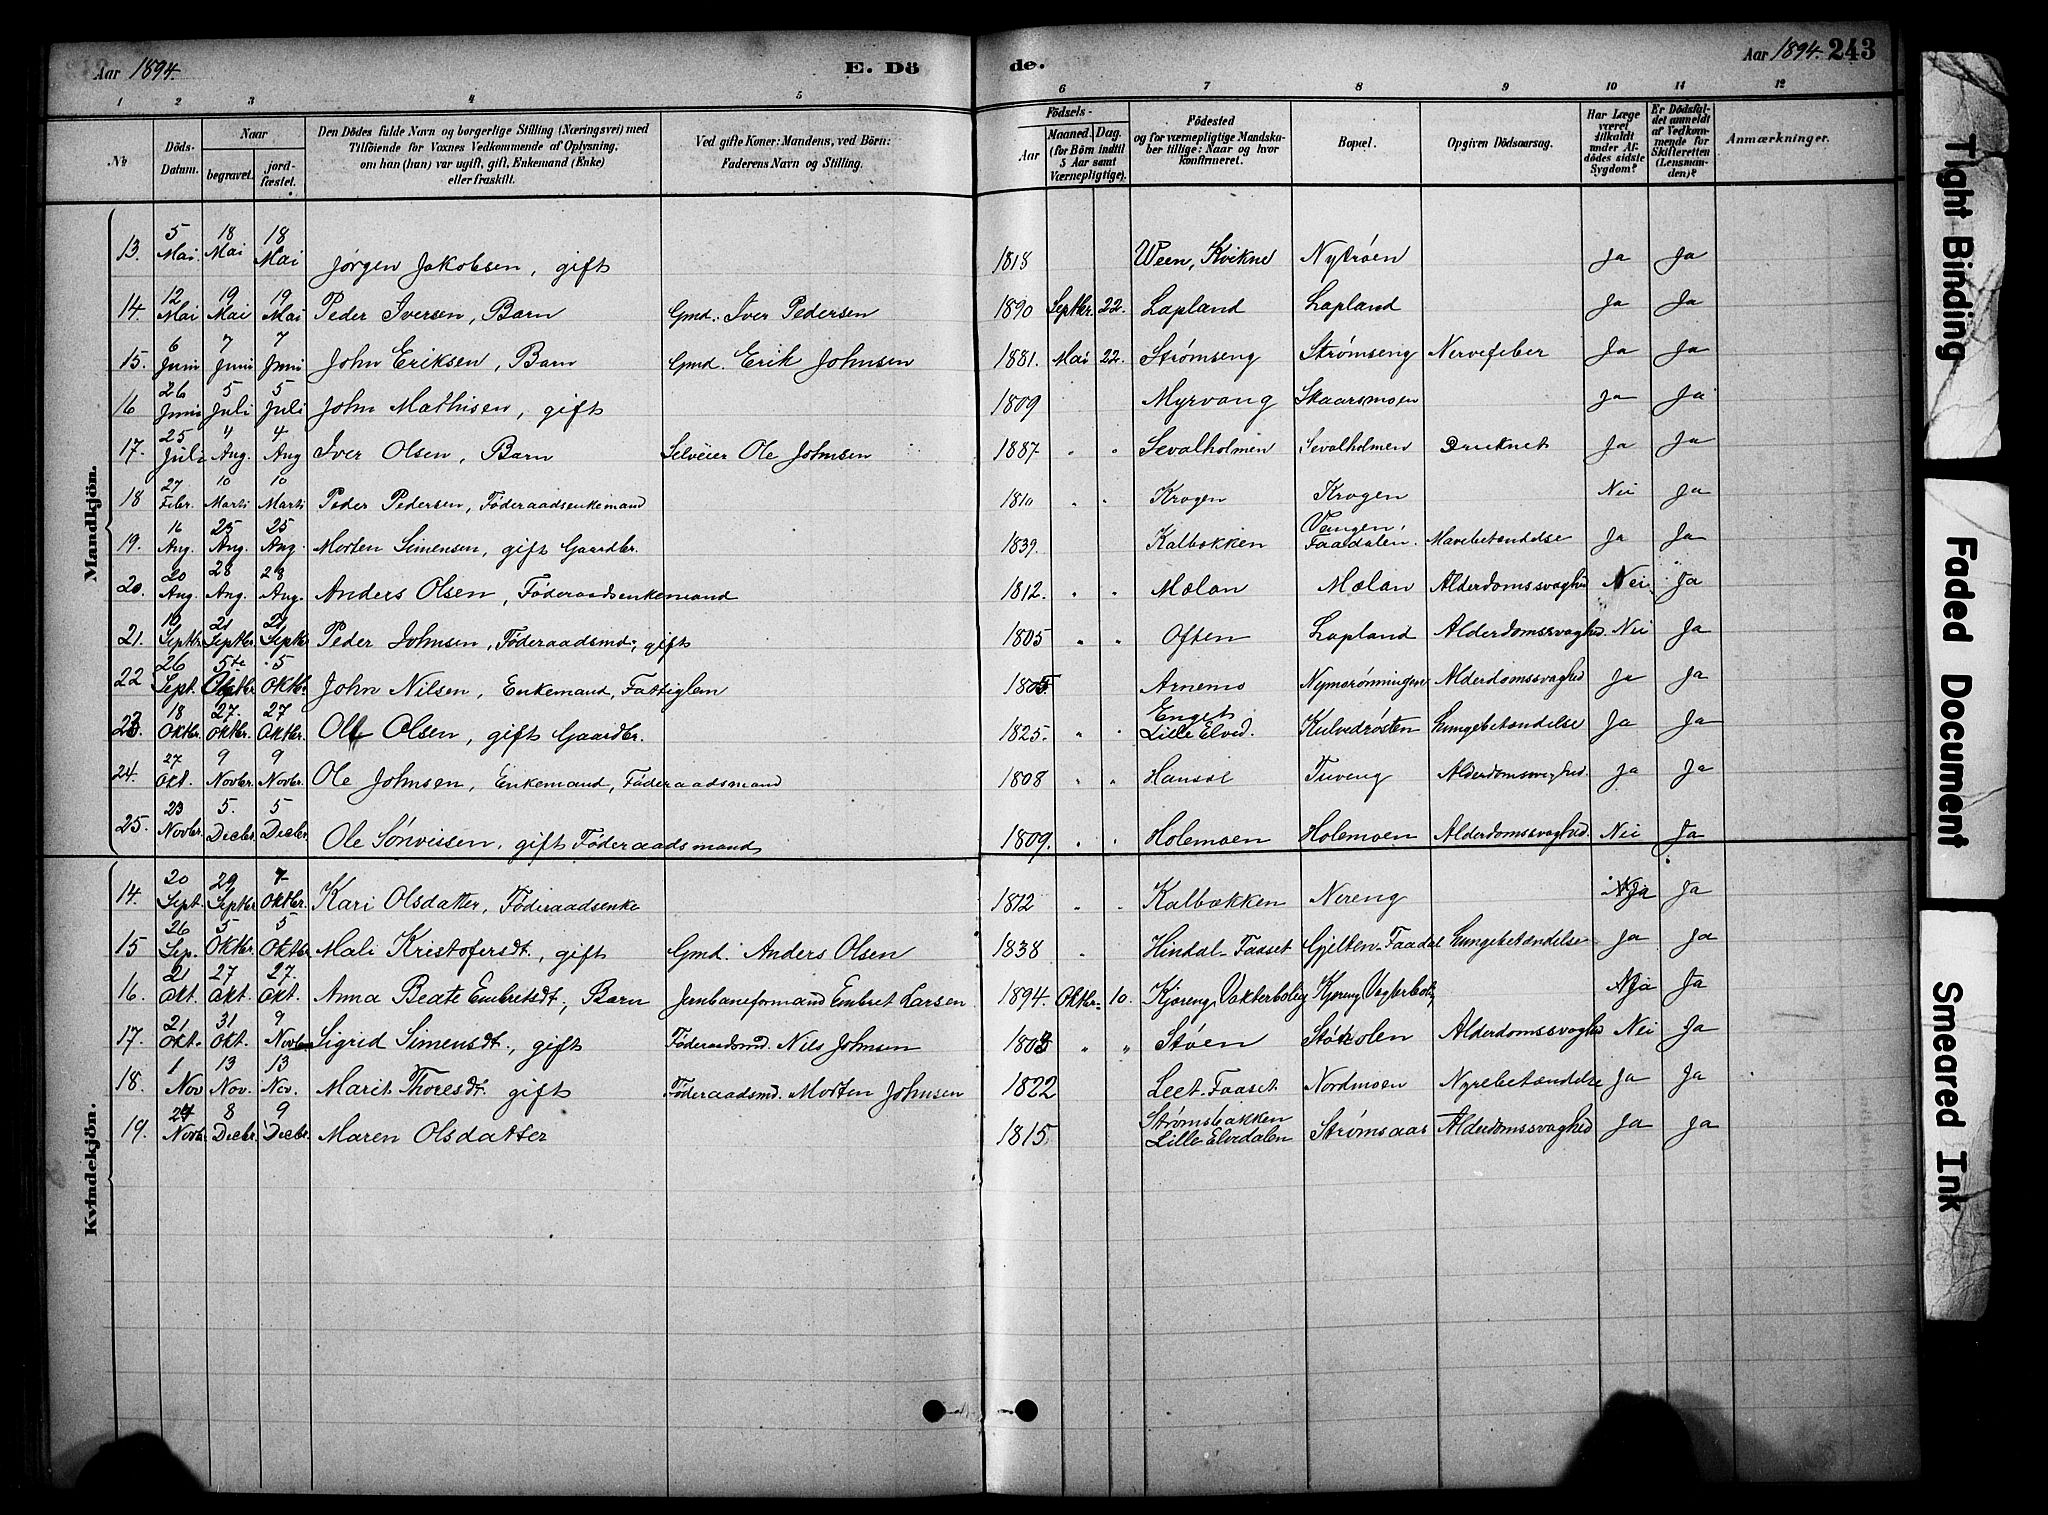 Aar 1894. E. Döde. Aar 1894. 243
1 2 3 4 5 6 7 8 9 10 11 12
No
Döds-Datum.
Naar
begravet.
jord-fæstet.
Den Dödes fulde Navn og borgerlige Stilling (Næringsvei) med
Tilföiende for Voxnes Vedkommende af Oplysning,
om han (hun) var ugift, gift, Enkemand (Enke)
eller fraskilt.
Ved gifte Koner: Mandens, ved Börn:
Faderens Navn og Stilling.
Födsels-
Aar
Maaned. Dag.
(for Börn indtil
5 Aar samt
Værnepligtige).
Födested
og for værnepligtige Mandska-
ber tillige: Naar og hvor
konfirmeret.
Bopæl.
Opgiven Dödsaarsag.
Har Læge
været
tilkaldt
under Af-
dödes sidste
Sygdom?
Er Dödsfal-
det anmeldt
af Vedkom-
mende for
Skifteretten
(Lensman-
den)?
Anmærkninger.
Mandkjön.
13. 5 Mai. 18 Mai 18 Mai Jørgen Jakobsen, gift 1818 Ween, Kvikne Nytrøen Ja Ja
14. 12 Mai 19 Mai 19 Mai Peder Iversen, Barn Gmd. Iver Pedersen 1890 Septbr. 22. Lapland Lapland Ja Ja
15. 6 Juni 7 Juni 7 Juni John Eriksen, Barn Gmd. Erik Johnsen 1881. Mai 22. Strømseng Strømseng Nervefeber Ja Ja
16 26 Juni 5 Juli 5 Juli John Mathisen, gift 1809 Myrvang Skaarsmoen Ja Ja
17. 25 Juli 4 Aug. 4 Aug Iver Olsen, Barn Selveier Ole Johnsen 1887 " " Sevalholmen Sevalholmen Druknet Ja Ja
18 27 Febr. 10 Marts 10 Marts Peder Pedersen, Föderaadsenkemand 1810 " " Krogen Krogen Nei Ja
19. 16 Aug. 25 Aug. 25 Aug. Morten Simensen, gift Gaardbr. 1839. Kalbækken Vangen, Faadalen. Mavebetændelse Ja Ja
20. 20 Aug. 28 Aug. 28 Aug. Anders Olsen, Föderaadsenkemand 1812. " " Mælan Mælan Alderdomssvaghed Nei Ja
21. Septbr 21 Septbr. 21 Septbr Peder Johnsen, Föderaadsmd., gift 1805 " " Often Lapland Alderdomssvaghed. Nei Ja
22 26 Sept. 5te Oktbr. 5 Oktbr. John Nilsen, Enkemand, Fattiglem 1805 Arnemo Nymorønningen Alderdomssvaghed Ja Ja
23. 18 Oktbr. 27. Oktbr. 27 Oktbr. Ole Olsen, gift Gaardbr. 1825. " " Enget Lille Elved. Kulvedrøsten Lungebetændelse Ja Ja
24. 27 Okt. 9 Novbr. 9 Novbr. Ole Johnsen, Enkemand, Föderaadsmand 1808 " " Hansol Tuveng Alderdomssvaghed. Ja Ja
25. 23 Novbr. 5. Decbr. 5 Decbr. Ole Sønvissen, gift Föderaadsmand 1809. " " Holemoen Holemoen Alderdomssvaghed. Nei Ja
Kvindekjön.
14. 20 Sept. 29 Septbr 7 Oktbr. Kari Olsdatter, Föderaadsenke 1812 " " Kalbækken Nereng Ja Ja
15 26 Sep. 5 Oktbr. 5 Oktbr. Mali Kristofersdt., gift Gmd. Anders Olsen 1838 " Hindal-Faaset Gjelten-Faadal Lungebetændelse Ja Ja
16. 21 Okt. 27 Okt. 27. Okt. Anna Beate Embretsdt., Barn Jernbaneformand Embret Larsen 1894. Oktbr. 10. Kjøreng Vakterbolig Kjøreng Vogterbolig Ja Ja
17. 21 Okt. 31 Okt. 9 Novbr. Sigrid Simensdt., gift Föderaadsmd. Nils Johnsen 1803 " " Støen Alderdomssvaghed Nei Ja
18. 1 Nov 13 Nov. 13 Nov. Marit Thoresdt. gift Föderaadsmd. Morten Johnsen 1822 Leet-Faaset Nordmoen Nyrebetændelse Ja Ja
19. Novbr. 8 Decbr. 9 Decbr. Maren Olsdatter 1815. Strømsbakken Lille Elvedalen Strømsaas Alderdomssvaghed Ja Ja
Tight Binding
Faded Document
Smeared Ink